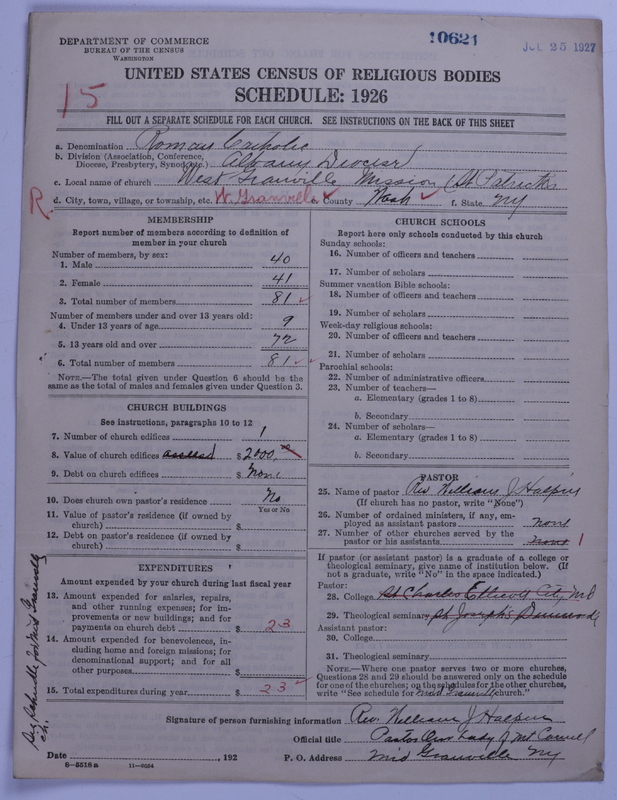 DEPARTMENT OF COMMERCE
BUREAU OF THE CENSUS
WASHINGTON
10621
JUL 25 1927
UNITED STATES CENSUS OF RELIGIOUS BODIES
SCHEDULE: 1926
15
FILL OUT A SEPARATE SCHEDULE FOR EACH CHURCH. SEE INSTRUCTIONS ON THE BACK OF THIS SHEET
a. Denomination Roman Catholic
b. Division (Association, Conference, Diocese, Presbytery, Synod, etc.) Albany Diocese
c. Local name of church West Granville Mission (St Patricks
R. d. City, town, village, or township, etc. W. Granville e. County Wash f. State NY
MEMBERSHIP
Report number of members according to definition of member in your church
Number of members, by sex:
1. Male 40
2. Female 41
3. Total number of members 81
Number of members under and over 13 years old:
4. Under 13 years of age 9
5. 13 years old and over 72
6. Total number of members 81
NOTE.—The total given under Question 6 should be the same as the total of males and females given under Question 3.
CHURCH BUILDINGS
See instructions, paragraphs 10 to 12
7. Number of church edifices 1
8. Value of church edifices assessed $ 2000.00
9. Debt on church edifices $ None
10. Does church own pastor's residence No
Yes or No
11. Value of pastor's residence (if owned by church) $
12. Debt on pastor's residence (if owned by church) $
EXPENDITURES
Amount expended by your church during last fiscal year
13. Amount expended for salaries, repairs, and other running expenses; for improvements or new buildings; and for payments on church debt $ 23
14. Amount expended for benevolences, including home and foreign missions; for denominational support; and for all other purposes $
15. Total expenditures during year $ 23
CHURCH SCHOOLS
Report here only schools conducted by this church
Sunday schools:
16. Number of officers and teachers
17. Number of scholars
Summer vacation Bible schools:
18. Number of officers and teachers
19. Number of scholars
Week-day religious schools:
20. Number of officers and teachers
21. Number of scholars
Parochial schools:
22. Number of administrative officers
23. Number of teachers—
a. Elementary (grades 1 to 8)
b. Secondary
24. Number of scholars—
a. Elementary (grades 1 to 8)
b. Secondary
PASTOR
25. Name of pastor Rev William J Halpin
(If church has no pastor, write "None")
26. Number of ordained ministers, if any, employed as assistant pastors none
27. Number of other churches served by the pastor or his assistants none 1
If pastor (or assistant pastor) is a graduate of a college or theological seminary, give name of institution below. (If not a graduate, write "No" in the space indicated.)
Pastor:
28. College St Charles Ellicott City, Md
29. Theological seminary St Joseph's Dunwoodie
Assistant pastor:
30. College
31. Theological seminary
NOTE.—Where one pastor serves two or more churches, Questions 28 and 29 should be answered only on the schedule for one of the churches; on the schedules for the other churches, write "See schedule for Mid Granville church."
Signature of person furnishing information Rev. William J Halpin
Official title Pastor Our Lady of Mt Carmel
Date , 192 P. O. Address Mid Granville NY
8-5518a 11-9054
Schedule for Mid Granville
ch.